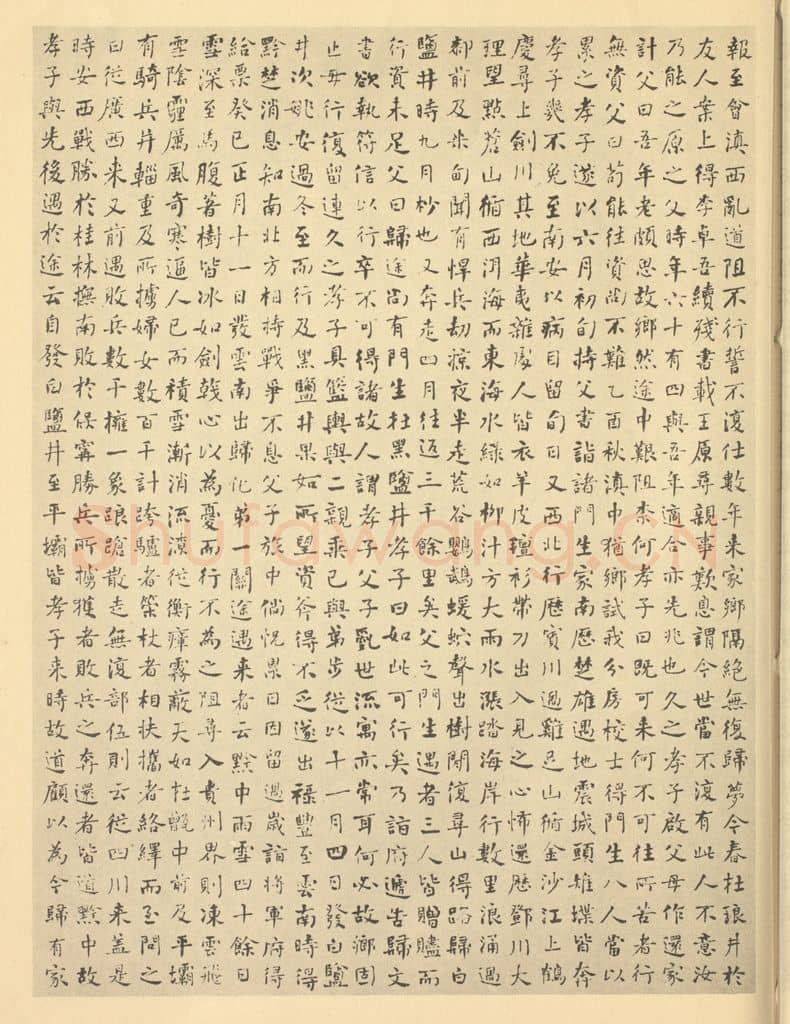 報至會滇西亂道阻不行誓不復仕數年来家鄉隔絕無復歸夢今春杜琅井於
友人案上得李卓吾續殘書載王原尋親事歎息謂今世當不復有此人不意汝
乃能之原之父時年六十有四與吾年適合亦先兆也久之孝子啟父母作還家
計父曰吾年老頗思故鄉然途中艱阻柰何孝子曰既可来何不可往所苦者行
無資父曰苟能往資尚不難乙酉秋滇中猶鄉試我分房校士得門生八人當以
累之孝子遂以六月初旬持父書詣諸門生家南歷楚雄遇地震城頭雉堞皆奔
孝子幾不免至南安以病目留旬日又西北行歷賓川過雞足山俯金沙江上鶴
慶尋上劍川其地華夷雜處人皆衣羊皮氊衫帶刀出入見之心怖還歷鄧川大
理望點蒼山循西洱海而東海水綠如柳汁方大雨水漲踏海岸行數里浪涌過
鄰前及米甸聞有悍兵劫掠夜半走荒谷鸚鵡蝯蛇聲出樹間復尋山得路歸白
鹽井時九月杪也又奔走四月往返三千餘里矣父之門生遇者三人皆贈贐而
行資未足父曰歸途尚有門生杜黑鹽井孝子曰如此可行矣乃詣府遞告歸文
書欲執符信以行卒不可得諸故人謂孝子父子亂世流寓亦常耳何必故鄉固
止毋行復留連久之孝子具籃輿與二親乘己與弟步從以十一月四日發白鹽
井次姚安過冬至而行及黑鹽井果如所望資斧得不乏遂出祿豐至雲南時得
黔楚消息知南北方相持戰爭不息父子旅中惝怳累日因留過歲詣將軍府得
給票癸巳正月十一日發雲南出歸化弟一關途遇来者云黔中雨雪四十餘日
雪深至馬腹著樹皆冰如劍戟心以為憂而行不為之阻尋入貴州界則凍雲飛
雪陰霾厲風奇寒逼人已而積雪漸消流澌從衡瘴霧蔽天如在甑中前及平壩
有騎兵并輜重及所擄婦女數百千計跨驢者策杖者相扶攜者絡繹而至問之
曰從廣西来又前遇敗兵數千擁一象踉蹌散走無復部伍則云從四川来蓋是
時安西戰勝於桂林撫南敗於保寧勝兵所擄獲者敗兵之奔還者皆道黔中故
孝子與先後遇於途云自發白鹽井至平壩皆孝子来時故道顧以為今歸有家